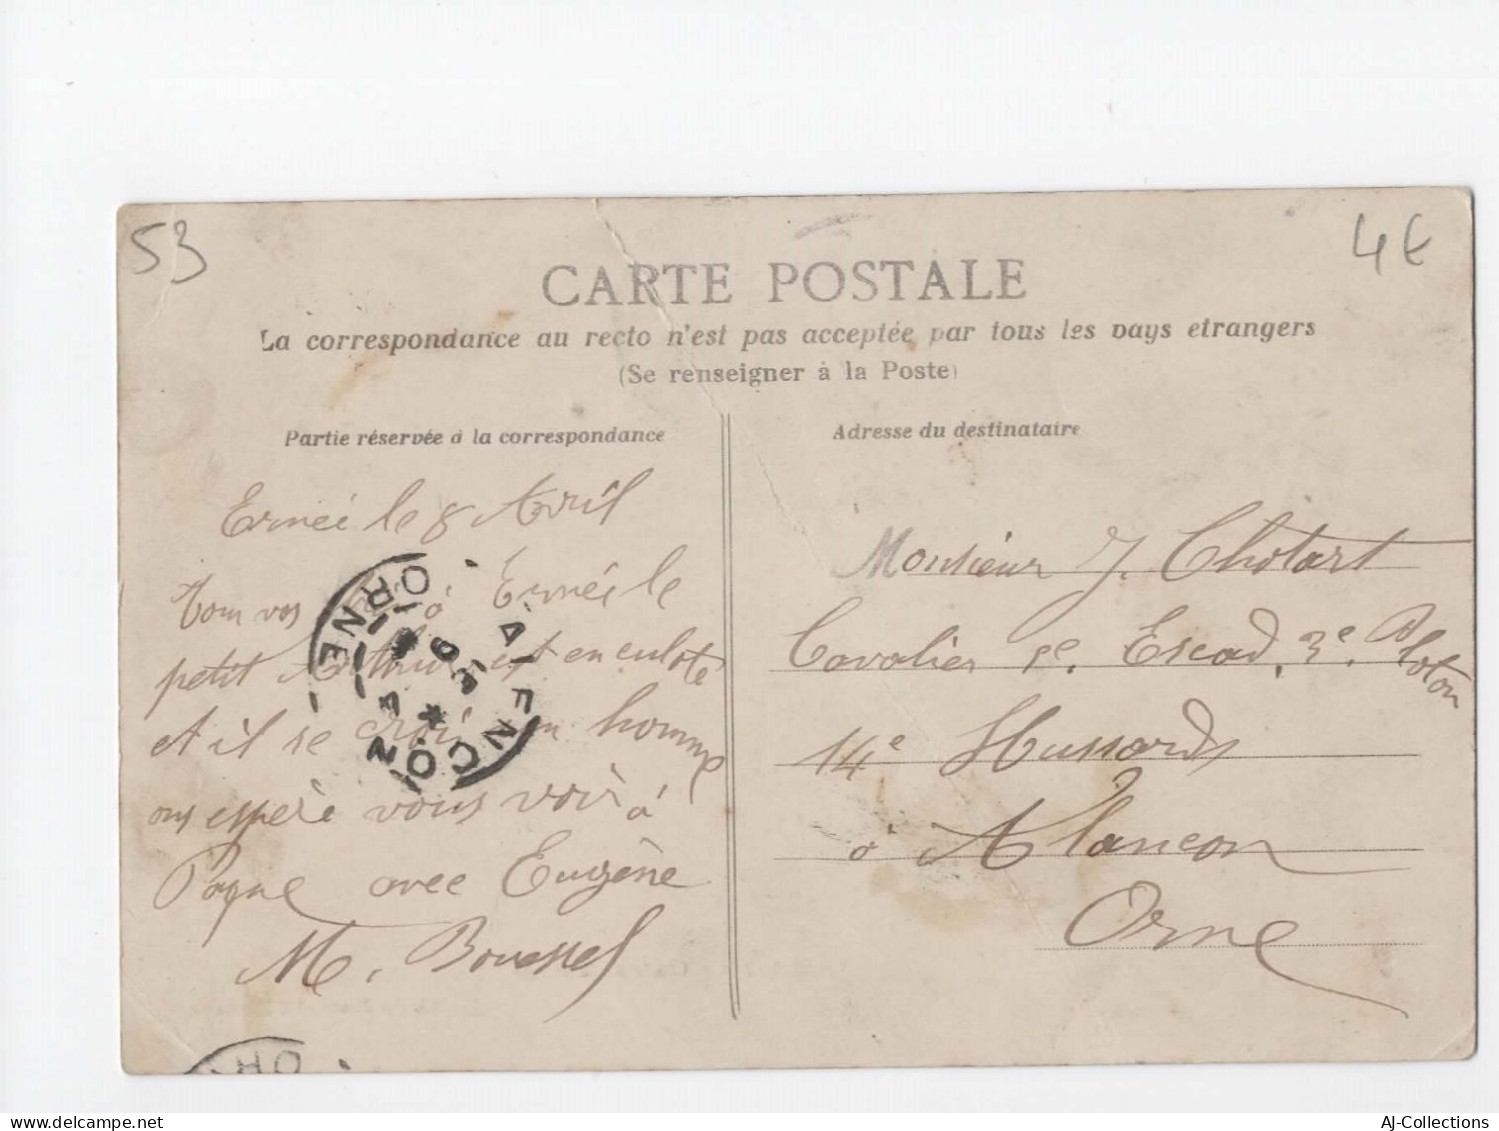 53
4€
CARTE POSTALE
La correspondance au recto n'est pas acceptée par tous les pays etrangers
(Se renseigner à la Poste)
Partie réservée à la correspondance
Adresse du destinataire
Ernée le 8 Avril
Tom vos à Ernée le
petit est en culote
et il se croit un homme
ons espère vous voir à
Paque avec Eugène
M. Boussel
ALENCON
ORNE
Monsieur J. Chotart
Cavalier 1e. Escad. 3e. Ploton
14e Hussards
à Alancon
Orne
OR
AJ-Collections